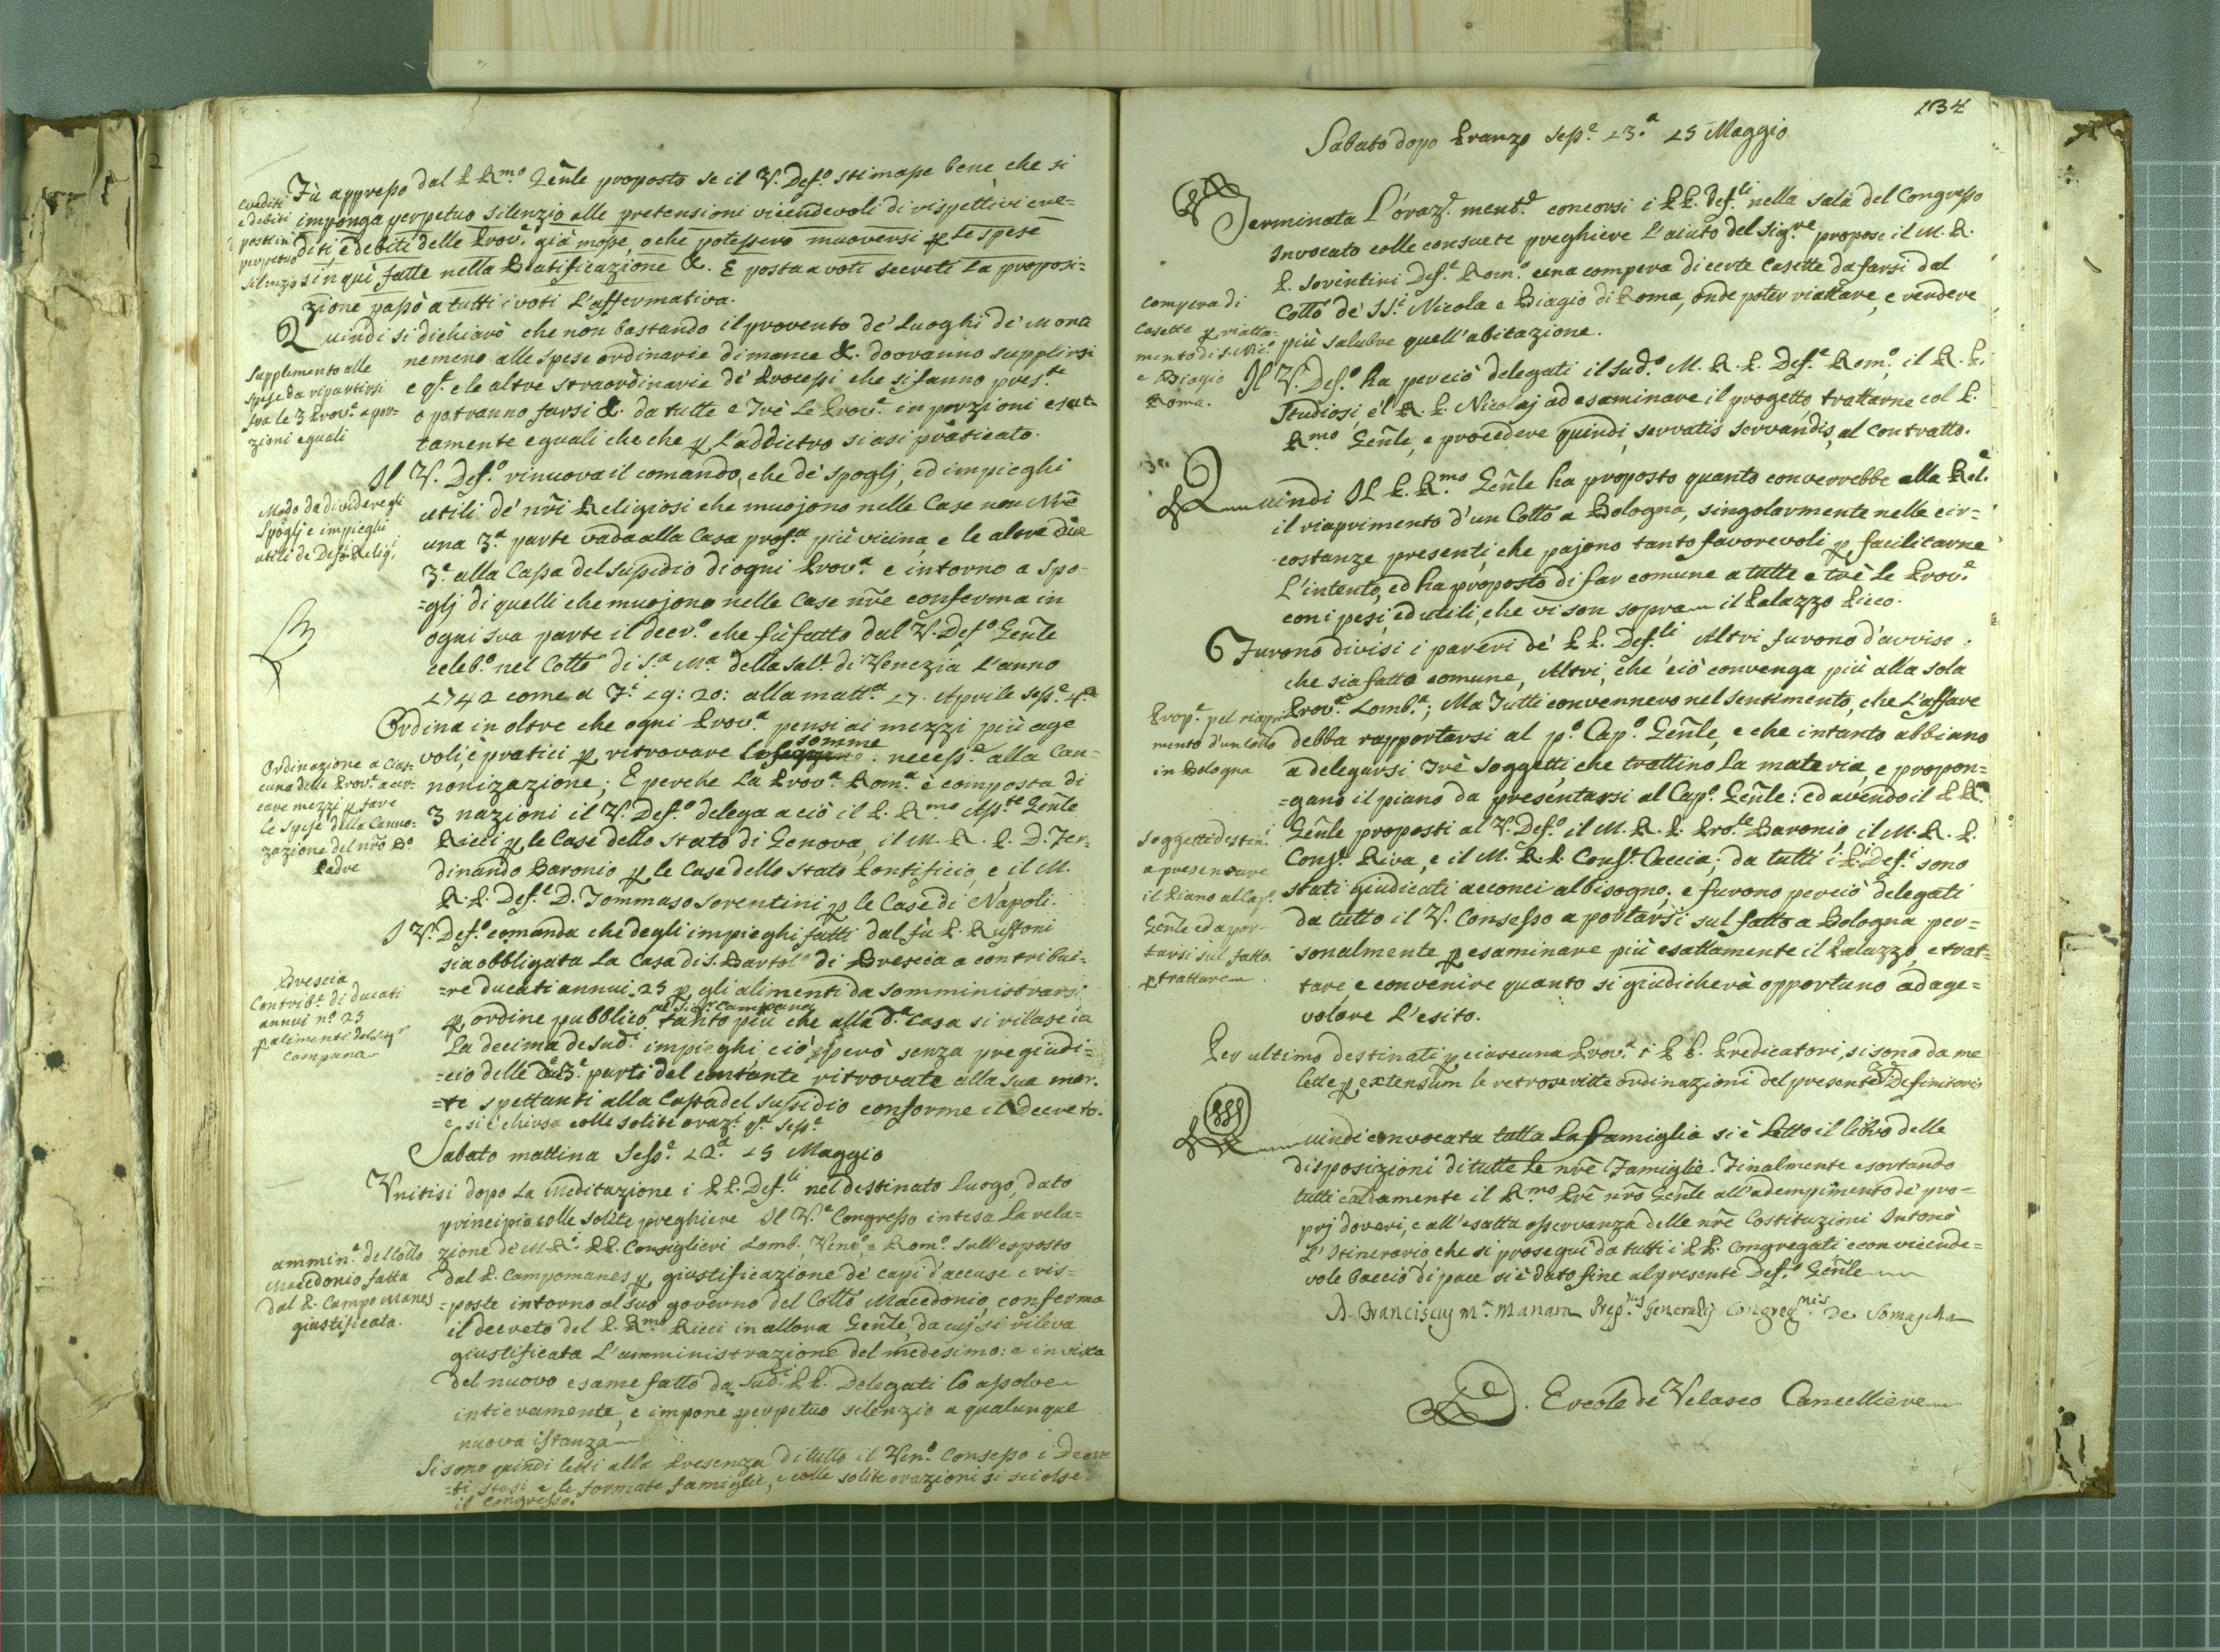 Fù appresso dal P. R.mo Gen̄le proposto se il V. Def.o stimasse bene, che si
imponga perpetuo silenzio alle pretensioni vicendevoli di rispettivi cre=
diti, e debiti delle Prov.e già mosse, o che potessero muoversi p le spese
sin quì fatte nella Beatificazione &. E posta a voti secreti la proposi=
zione passò a tutti i voti l'affermativa.
crediti
e debiti
posti in
perpetuo
silenzio
Quindi si dichiarò che non bastando il provento de' Luoghi de' Monti
nemeno alle spese ordinarie di mance &. dovranno supplirsi
e q.te e le altre straordinarie de' Processi che si fanno pres.te
o potranno farsi &. da tutte e Trè le Prov.e in porzioni esat-
tamente eguali che che p l'addietro siasi pràticato.
Supplemento alle
spese da ripartirsi
fra le 3 Prov.e a por-
zioni eguali
Il V. Def.o rinuova il comando, che de' spoglj, ed impieghi
utili de' nr̄i Religiosi che muojono nelle Case non Nr̄e
una 3.a parte vada alla Casa profs.a più vicina e le altre due
3.e alla Cassa del sussidio di ogni Prov.a e intorno a spo-
=glj di quelli che muojono nelle Case nr̄e conferma in
ogni sua parte il decr.o che fù fatto dal V. Def.o Gen̄le
celeb.o nel Cotto di S.a M.a della Sal.e di Venezia l'anno
1742 come a F.i 19: 20: alla matt.a 17. Aprile sess.e 4.a
Modo da dividere gli
Spoglj e impieghi
utili de Def.i Relig.i
Ordina in oltre che ogni Prov.a pensi ai mezzi più age
voli, e pratici p ritrovare le somme necess.e alla Can=
nonizazione; E perche la Prov.a Rom.a è composta di
3 nazioni il V. Def.o delega a ciò il P. R.mo Ass.te Gen̄le
Ricci p le Case dello Stato di Genova, il M. R. P. D. Fer-
dinando Baronio p le Case dello Stato Pontificio, e il M.
R. P. Def.e D. Tommaso Sorentini p le Case di Napoli.
Ordinazione a cias-
cuna delle Prov.e a cer-
care mezzi p fare
le Spese della Canno-
zazione del nr̄o B.o
Padre
I V. Def.o comanda che degli impieghi fatti dal fù P. Ruffoni
sia obbligata la Casa di S. Bartol.o di Brescia a contribui=
=re ducati annui 25 p gli alimenti da somministrarsi
p ordine pubblico al Sig.r Campana tanto più che alla d.a Casa si rilascia
la decima de sud.i impieghi, ciò però senza pregiudi=
=cio delle due 3.e parti del contante ritrovate alla sua mor.
=te spettanti alla Cassa del sussidio conforme il Decreto.
e si è chiusa colle solite oraz.i q.a sess.e
Brescia
Contrib.e di ducati
annui n.o 25
p alimenti del Sig.r
Campana
Sabato mattina Sess.e 22.a 25 Maggio
Unitisi dopo la meditazione i PP. Def.ti nel destinato luogo, dato
principio colle solite preghiere Il V.e Congresso intesa la rela=
zione de M. R.i PP. Consiglieri Lomb. Ven.o, e Rom.o sull'esposto
dal P. Campomanes p giustificazione de' capi d'accuse e ris-
=poste intorno al suo governo del Cotto Macedonio, conferma
il decreto del P. R.mo Ricci in allora Gen̄le, da cuj si rileva
giustificata l'amministrazione del medesimo: e in vista
del nuovo esame fatto da sud.i PP. Delegati lo assolve
intieramente, e impone perpetuo silenzio a qualunque
nuova istanza
ammin.e del Cotto
Macedonio fatta
dal P. Campo Manes
giustificata.
Si sono quindi letti alla presenza di tutto il Ven.o Consesso i Decre
=ti stesi e le formate famiglie, e colle solite orazioni si sciolse
il congresso.
134
Sabato dopo Pranzo sess.e 23.a 25 Maggio
Terminata l'oraz.e ment.e concorsi i PP. Def.ti nella sala del Congresso
Invocato colle consuete preghiere l'aiuto del Sig.re propose il M. R.
P. Sorentini Def.e Rom.o una compera di certe Casette da farsi dal
Cotto de' SS.i Nicola e Biagio di Roma, onde poter riattare, e rendere
più salubre quell'abitazione.
compera di
Casette p riatta-
mento di S. Nic.o
e Biagio
Roma.
Il V. Def.o ha perciò delegati il sud.o M. R. P. Def.e Rom.o, il R. P.
Studiosi, e'l R. P. Nicolaj ad esaminare il progetto, trattarne col P.
R.mo Gen̄le, e procedere quindi, servatis servandis, al contratto.
Quindi Il P. R.mo Gen̄le ha proposto quanto converrebbe alla Rel.e
il riaprimento d'un Cotto a Bologna, singolarmente nelle cir=
costanze presenti, che pajono tanto favorevoli p facilitarne
l'intento, ed ha proposto di far comune a tutte e trè le Prov.e
con i pesi, ed utili, che vi son sopra il Palazzo Ricco.
Furono divisi i pareri de' PP. Def.ti Altri furono d'avviso
che sia fatto comune, Altri, che ciò convenga più alla sola
Prov.a Lomb.a; Ma Tutti convennero nel sentimento, che l'affare
debba rapportarsi al p.o Cap.o Gen̄le, e che intanto abbiano
a delegarsi Trè soggetti, che trattino la materia, e propon=
=gano il piano da presentarsi al Cap.o Gen̄le: ed avendo il P. R.mo
Gen̄le proposti al V. Def.o il M. R. P. Pro.le Baronio, il M. R. P.
Cons.e Riva, e il M. R. P. Cons.e Caccia; da tutti i P.i Def.i sono
stati giudicati acconci al bisogno; e furono perciò delegati
da tutto il V. Consesso a portarsi sul fatto a Bologna per=
sonalmente p esaminare più esattamente il Palazzo, e trat=
tare, e convenire quanto si giudicherà opportuno ad age=
volare l'esito.
Prop.e pel riapri
mento d'un Cotto
in Bologna
Soggetti destin.i
a presentare
il Piano al Cap.o
Gen̄le ed a por-
tarsi sul fatto
p trattare
Per ultimo destinati p ciascuna Prov.a i PP. Predicatori, si sono da me
lette p extensum le retroscritte ordinazioni del presente V. Definitorio
Quindi convocata tutta la famiglia si è letto il libro delle
disposizioni di tutte le nr̄e Famiglie. Finalmente esortando
tutti caldamente il R.mo Pr̄e nr̄o Gen̄le all'adempimento de' pro=
prj doveri, e all'esatta osservanza delle nr̄e Costituzioni Intonò
l'Itinerario, che si proseguì da tutti i PP. Congregati, e con vicende=
vole baccio di pace si è dato fine al presente Def.o Gen̄le
D. Franciscus M.a Manara Prep.tus Generalis Congreg.nis de Somascha
D. Ercole de Velasco Cancelliere